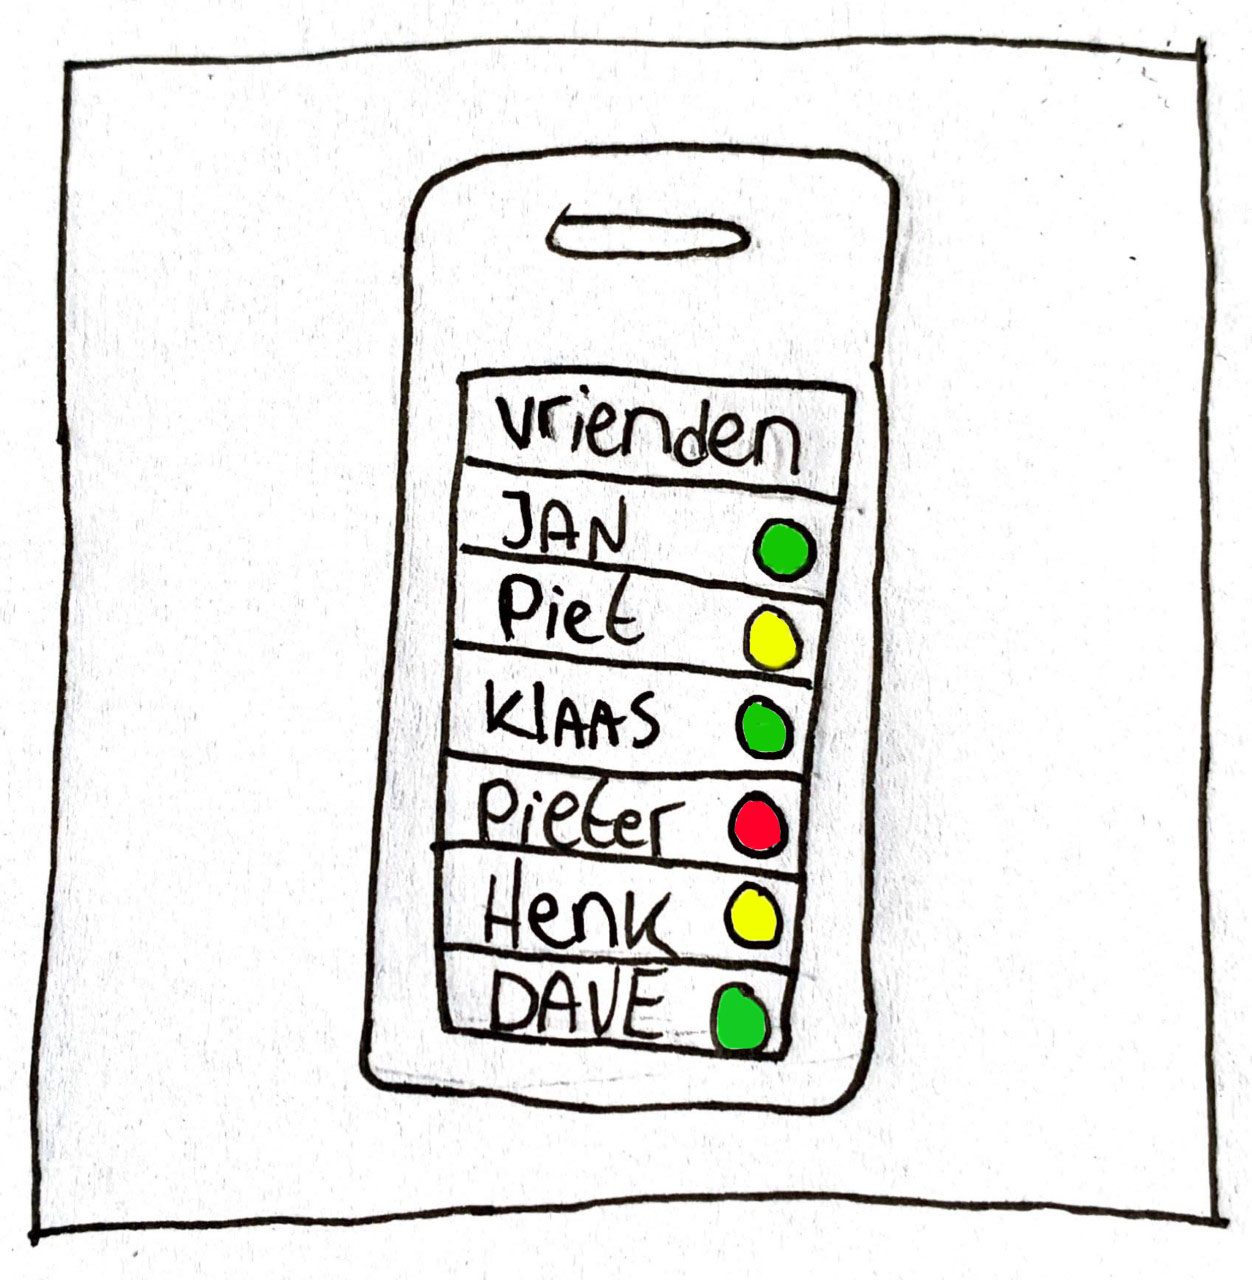 vrienden
JAN
Piet
KlAAS
pieter
Henk
DAVE